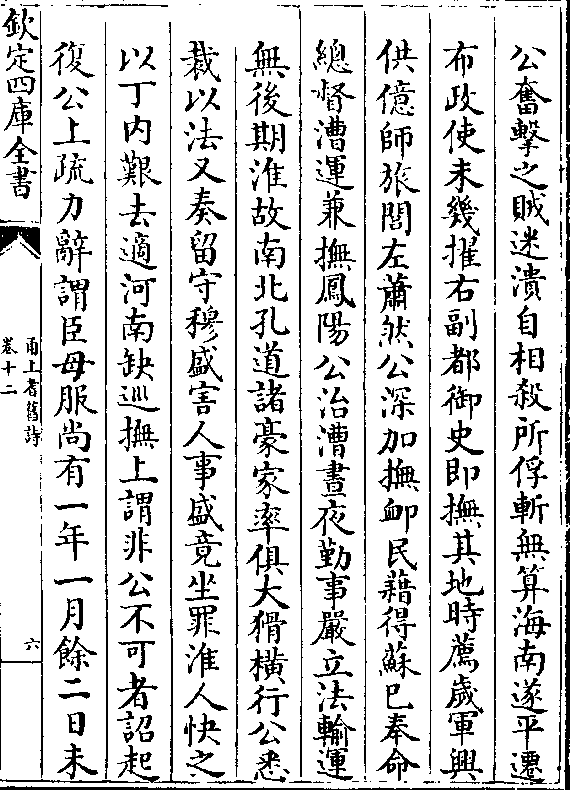 公奮擊之賊迷潰自相殺所俘斬無算海南遂平遷
布政使未幾擢右副都御史即撫其地時薦歲軍興
供億師旅閭左蕭然公深加撫卹民藉得蘇已奉命
總督漕運兼撫鳳陽公治漕晝夜勤事嚴立法輸運
無後期淮故南北孔道諸豪家率俱大猾橫行公悉
裁以法又奏留守穆盛害人事盛竟坐罪淮人快之
以丁内艱去適河南缺廵撫上謂非公不可者詔起
復公上疏力辭謂臣母服尚有一年一月餘二日未
欽定四庫全書
甬上耆舊詩
卷十二
六